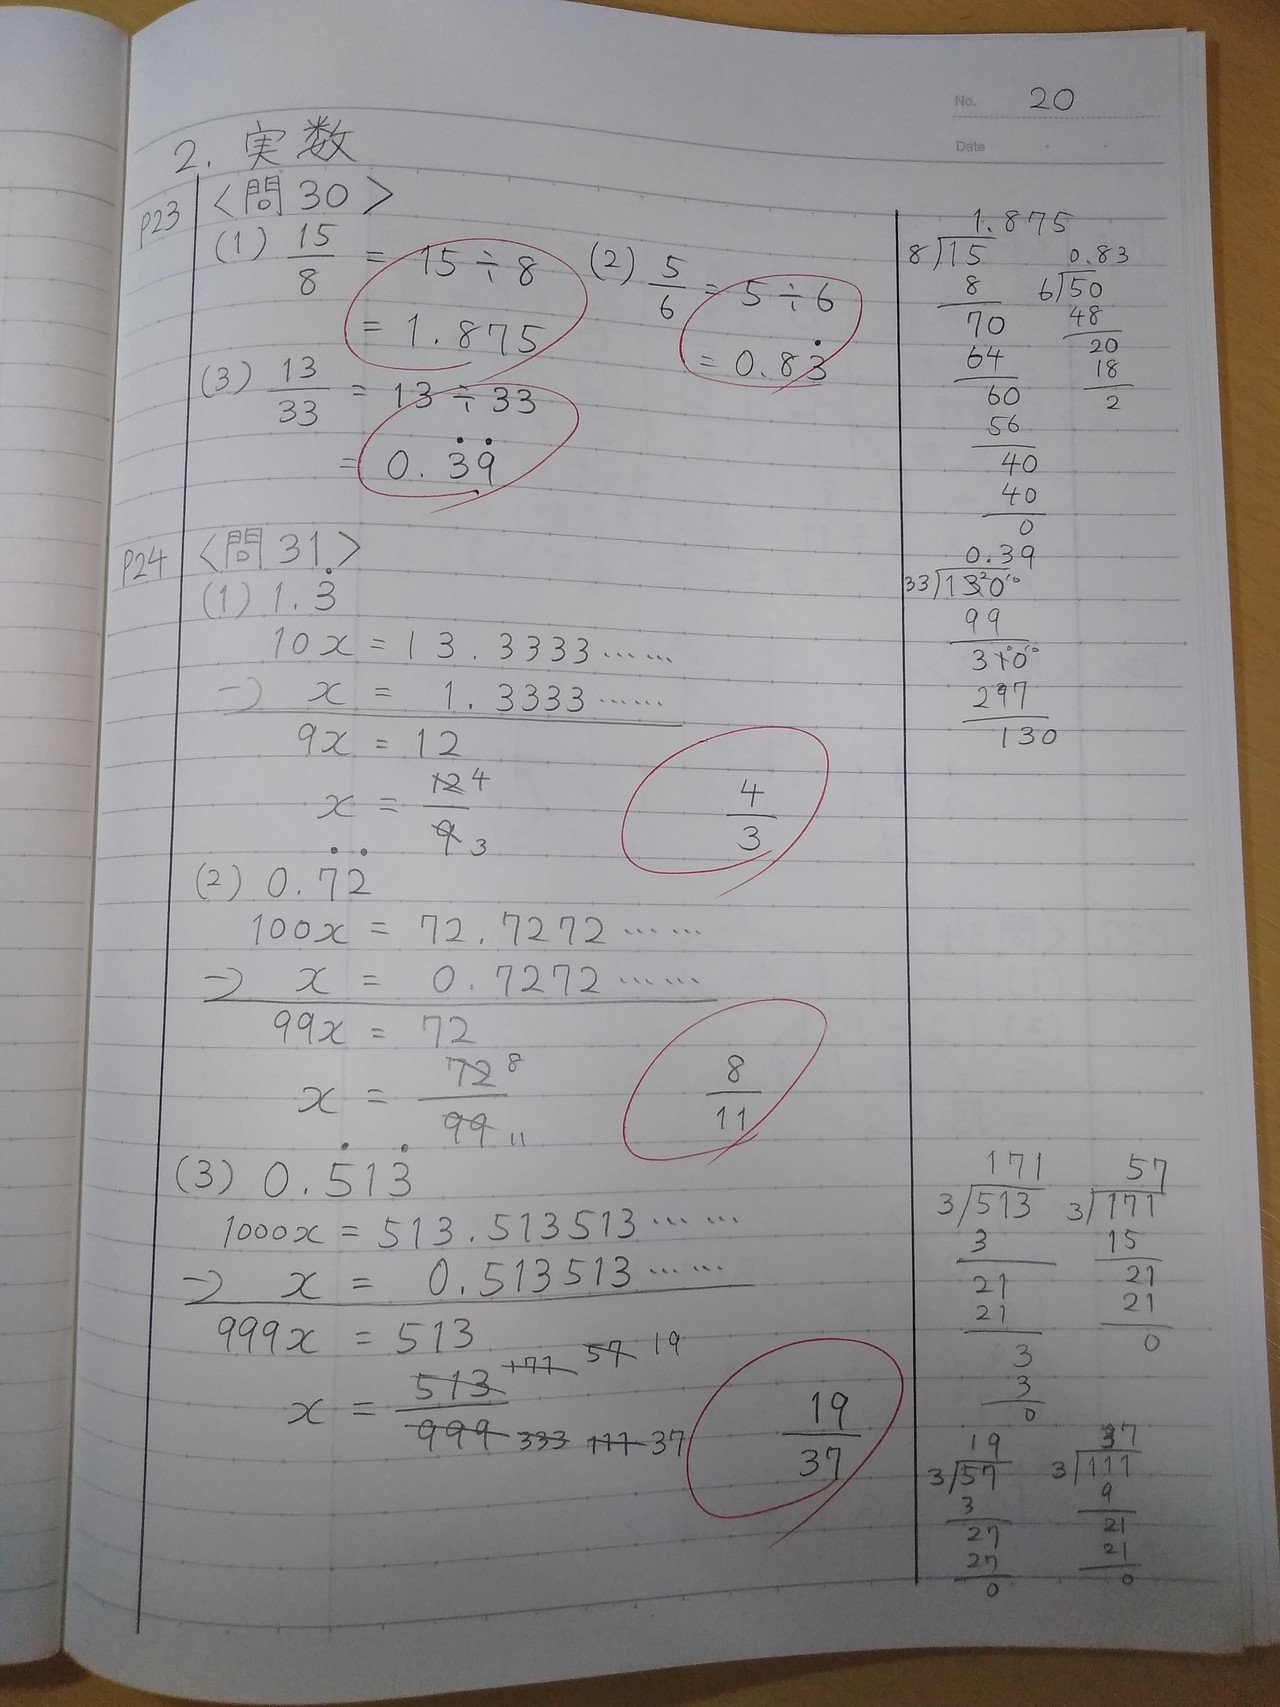 No. 20
Date
2. 実数
P23 <問30>
(1) 15/8 = 15÷8
= 1.875
(2) 5/6 = 5÷6
= 0.83̇
(3) 13/33 = 13÷33
= 0.3̇9̇
P24 <問31>
(1) 1.3̇
10x = 13.3333……
-) x = 1.3333……
9x = 12
x = 12/9 4 3
4/3
(2) 0.7̇2̇
100x = 72.7272……
-) x = 0.7272……
99x = 72
x = 72/99 8 11
8/11
(3) 0.5̇13̇
1000x = 513.513513……
-) x = 0.513513……
999x = 513
x = 513/999 171 57 19
333 111 37
19/37
1.875
8)15
8
70
64
60
56
40
40
0
0.83
6)50
48
20
18
2
0.39
33)130
99
310
297
130
171
3)513
3
21
21
3
3
0
57
3)171
15
21
21
0
19
3)57
3
27
27
0
37
3)111
9
21
21
0